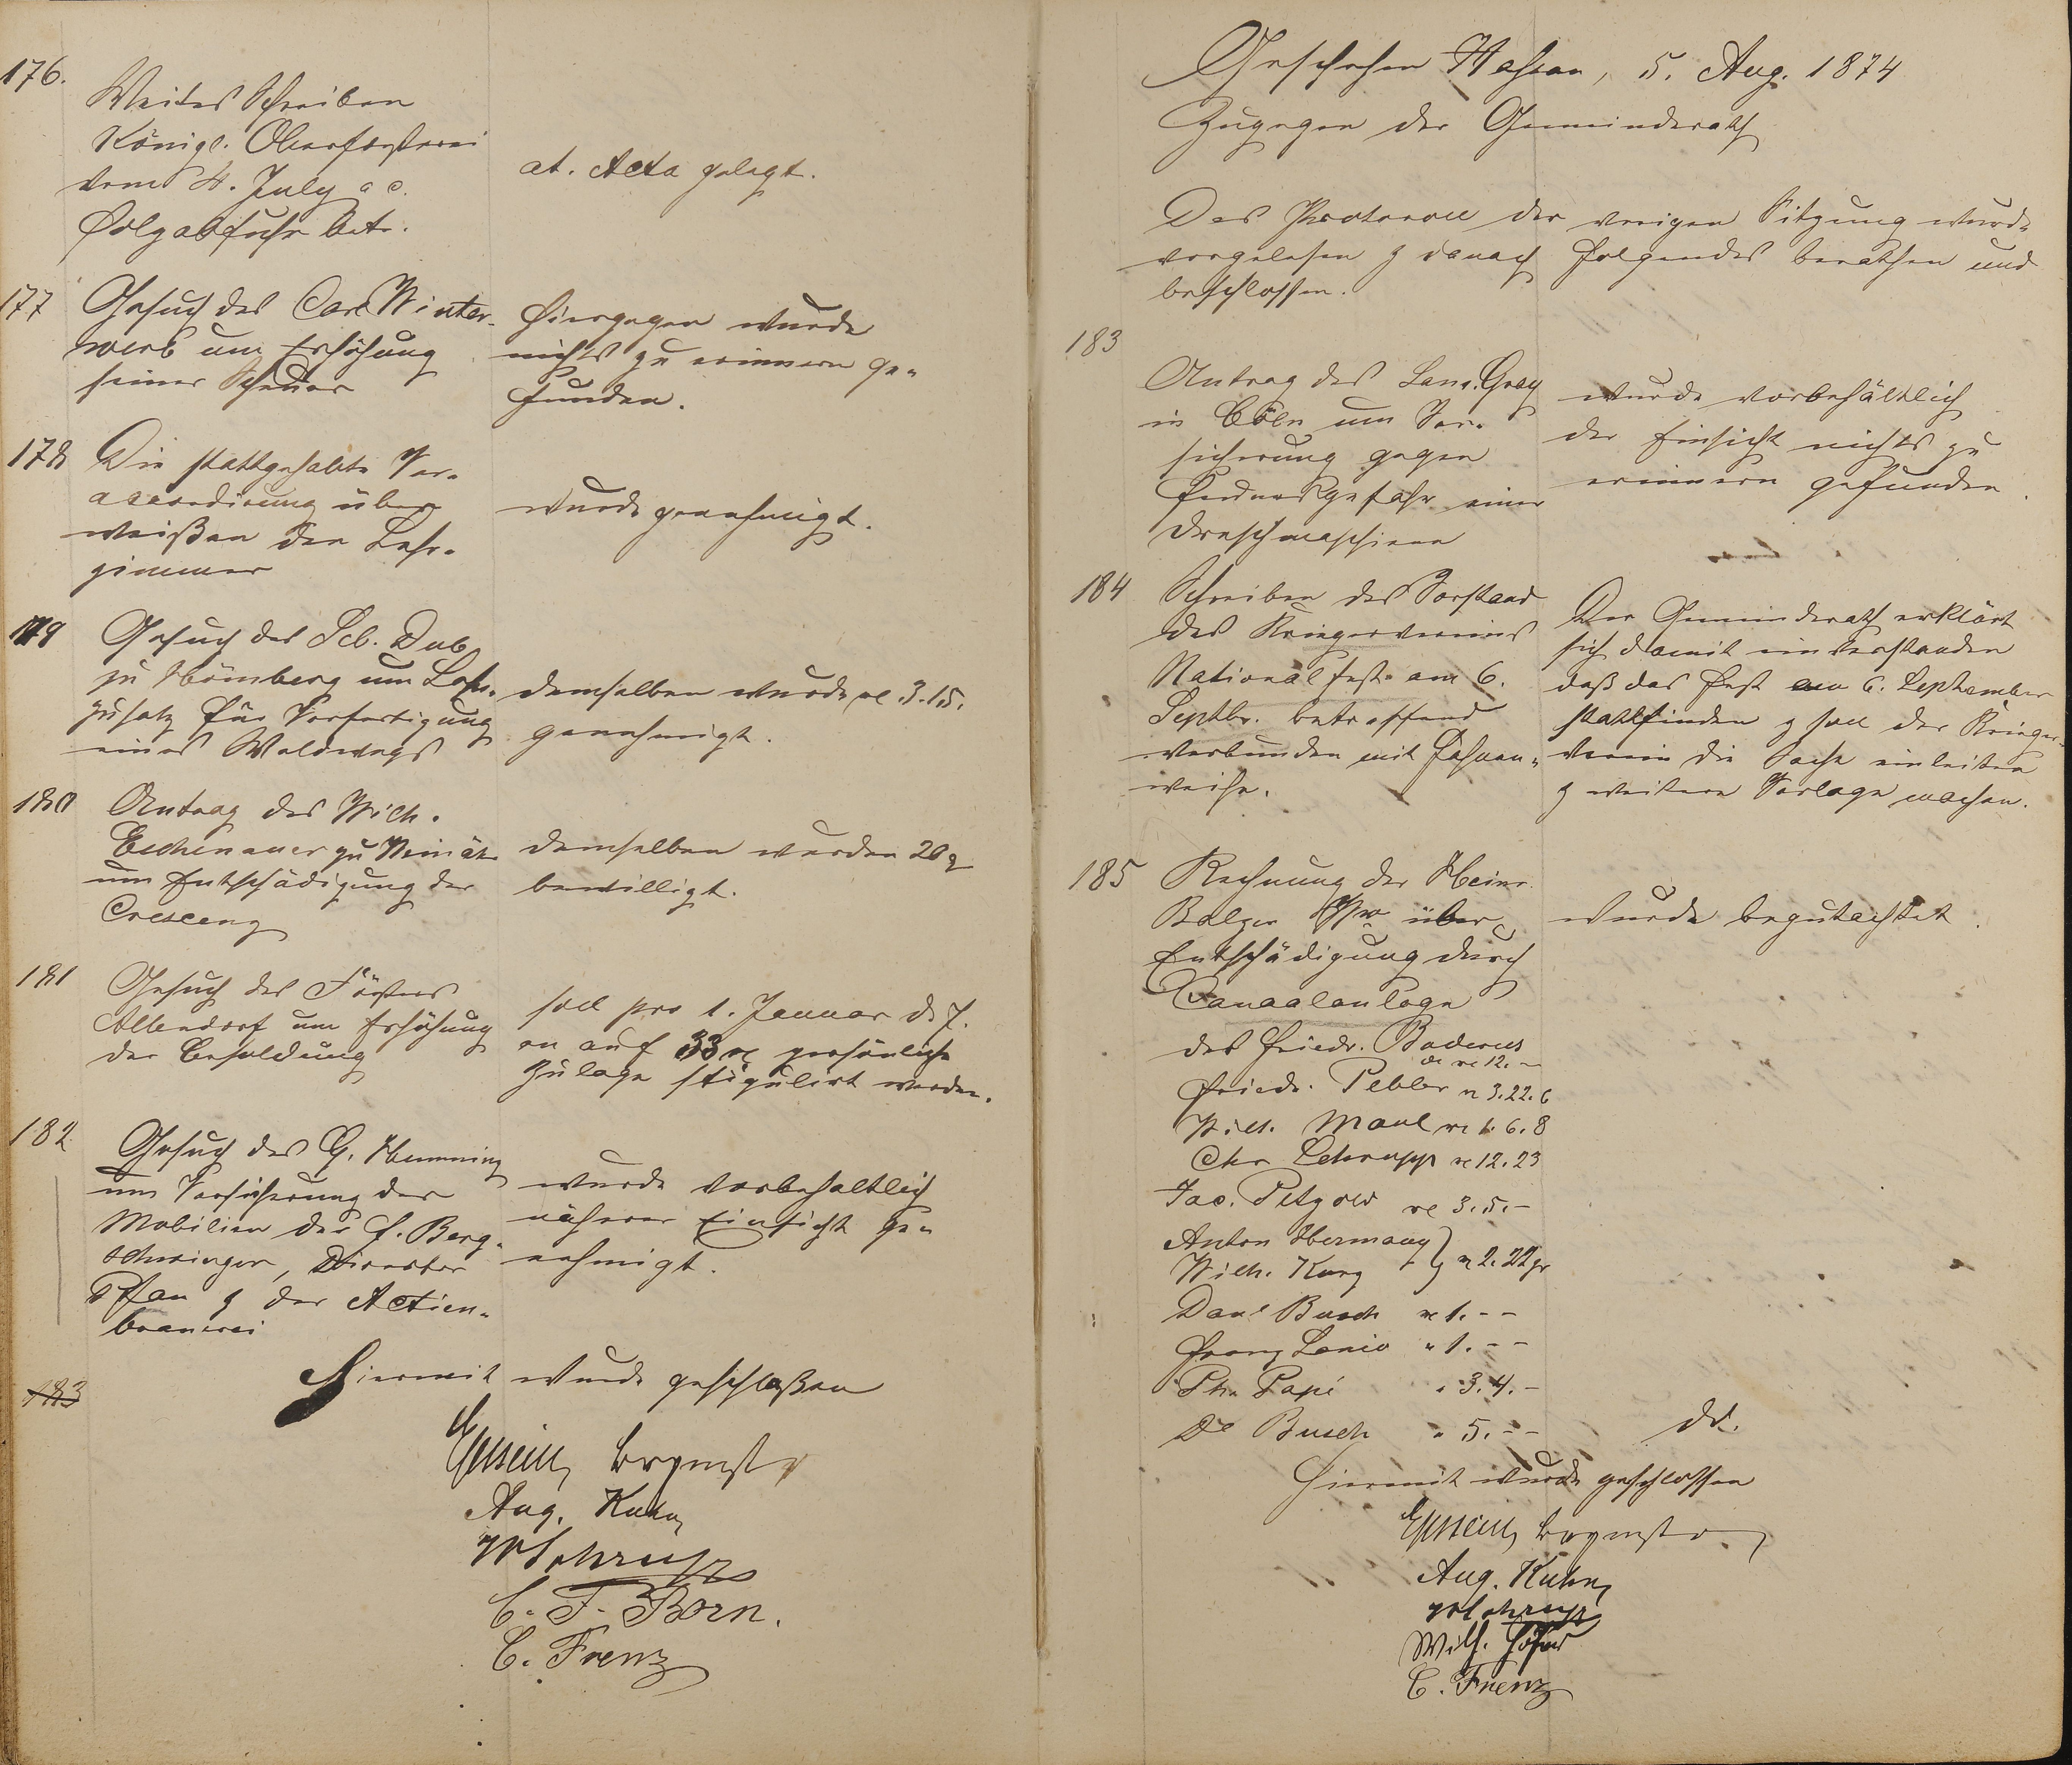 176.
Weites Schreiben
Königl. Oberförsterei
vom 4. July a c.
Holzabfuhr betr.
at. Acta gelegt.
177
Gesuch des Carl Winter-
werb um Erhöhung
seiner Scheuer
Hiergegen wurde
nichts zu erinnern ge-
funden.
178
Die stattgehabte Ver-
accordirung über
weißen der Lehr-
zimmer
wurde genehmigt.
179
Gesuch des Seb.
zu Hömberg um Lohn-
zusatz für Verfertigung
eines Waldwegs
demselben wurde rl 3.15.
genehmigt.
180
Antrag des Wilh.
Eschenauer zu Weinähr
um Entschädigung der
Crescenz
demselben werden 20
bewilligt.
181
Gesuch des Försters
Allendorf um Erhöhung
der Besoldung
soll pro 1. Januar d. J.
an auf 33 rl persönliche
Zulage stipulirt werden.
182
Gesuch des G. Humming
um Versicherung der
Mobilien des f. Berg-
schwinger, Director
Pfau & der Actien-
brauerei
wurde vorbehaltlich
näherer Einsicht ge-
nehmigt.
183
Hiermit wurde geschlaßen
Brgmstr
Aug. Kuhn
C. F. Born.
C. Frenz
Geschehen Nassau, 5. Aug. 1874
Zugegen der Gemeinderath
Das Protocoll der vorigen Sitzung wurde
vorgelesen & danach Folgendes berathen und
beschlossen.
183
Antrag des
in Cöln um Ver-
sicherung gegen
Feuersgefahr einer
Dreschmaschiene
wurde vorbehältlich
der Einsicht nichts zu
erinnern gefunden.
184
Schreiben des Vorstand
des Kriegervereins
Nationalfest am 6.
Septbr. betreffend
verbunden mit Fahnen-
weihe.
Der Gemeinderath erklärt
sich damit einverstanden
daß das Fest am 6. September
stattfinden & soll der Krieger-
verein die Sache einleiten
& weitere Vorlage machen.
185
Rechnung der Heinr.
Balzer Ww über
Entschädigung durch
Canaalanlage
wurde begutachtet.
des Friedr. Buderus
rl 12. –
Friedr. Pebler rl 3.22.6
Wilh. Maul rl 1. 6. 8
Chr Schrupp rl 12. 23
Jac. rl 3. 5. –
Anton Hermany
Wilh. Kurz } rl 2. 22 gr
Danl Busch rl 1. – –
Franz Lanio " 1. – –
Ph. Pape " 3. 4. –
Dl Busch " 5. – –
dd.
Hiermit wurde geschlossen
Brgmstr
Aug. Kuhn
Wilh.
C. Frenz